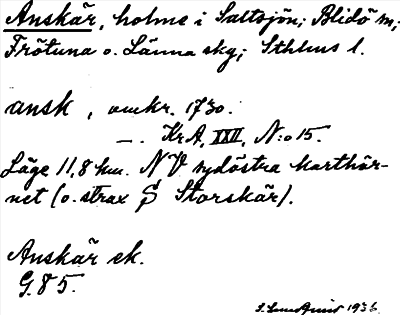 Anskär, holme i Saltsjön; Blidö sn,
Frötuna o. Länna skg; Sthlms l.
ansk, omkr. 1730.
—. KrA, XXII, N:o 15.
Läge 11,8 km. NV sydöstra karthör-
net (o. strax S Storskär).
Anskär ek.
G. 85.
1936